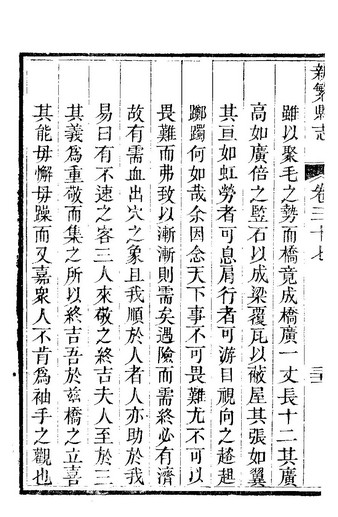 新繁縣志
卷三十七
雖以聚毛之勢而橋竟成橋廣一丈長十二其廣
高如廣倍之竪石以成梁覆瓦以蔽屋其張如翼
其亘如虹勞者可息肩行者可游目視向之趦趄
躑躅何如哉余因念天下事不可畏難尤不可以
畏難而弗致以漸漸則需矣遇險而需終必有濟
故有需血出穴之象且我順於人者人亦助於我
易曰有不速之客三人來敬之終吉夫人至於三
其義爲重敬而集之所以終吉吾於茲橋之立喜
其能毋懈毋躁而又嘉衆人不肯爲袖手之觀也